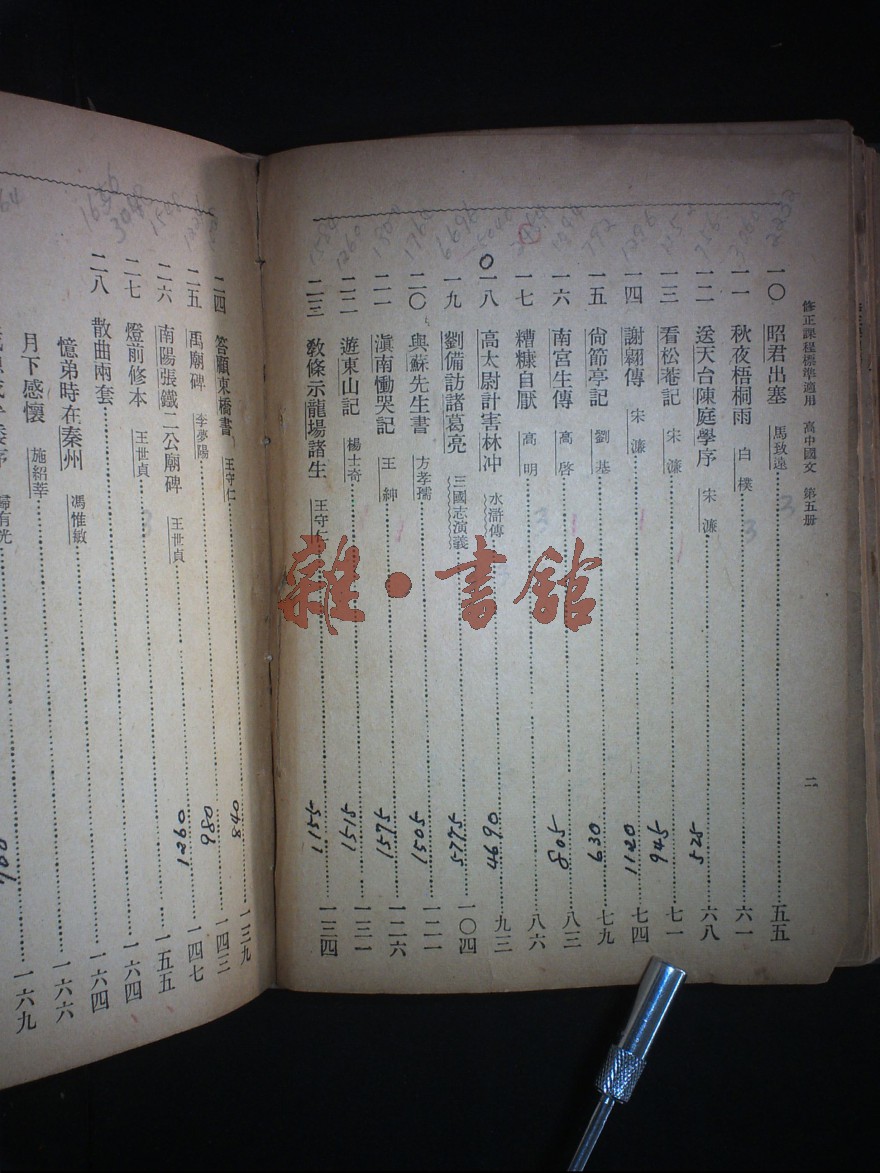 修正課程標準適用 高中國文 第五册
二
一〇 昭君出塞 馬致遠 五五
一一 秋夜梧桐雨 白樸 六一
一二 送天台陳庭學序 宋濂 六八
525
一三 看松菴記 宋濂 七一
945
一四 謝翱傳 宋濂 七四
1120
一五 尙節亭記 劉基 七九
630
一六 南宮生傳 高啓 八三
508
一七 糟糠自厭 高明 八六
一八 高太尉計害林冲 水滸傳 九三
4690
一九 劉備訪諸葛亮 三國志演義 一〇四
5775
二〇 與蘇先生書 方孝孺 一二一
1505
二一 滇南慟哭記 王紳 一二六
1575
二二 遊東山記 楊士奇 一三一
1515
二三 敎條示龍場諸生 王守仁 一三四
1155
二四 答顧東橋書 王守仁 一三九
840
二五 禹廟碑 李夢陽 一四三
980
二六 南陽張鐵二公廟碑 王世貞 一四七
1290
二七 燈前修本 王世貞 一五五
二八 散曲兩套 一六四
憶弟時在秦州 馮惟敏 一六四
月下感懷 施紹莘 一六六
一六九
雜·書館